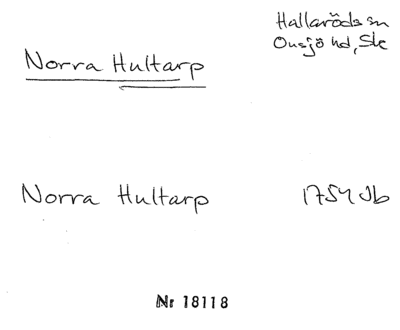 Hallaröds sn
Onsjö hd, Sk
Norra Hultarp
Norra Hultarp 1754 Jb
Nr 18118